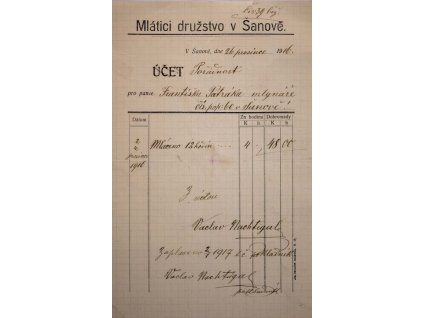 Mláticí družstvo v Šanově.
V Šanově, dne 26 prosince 1916.
ÚČET
pro pana Františka mlynáře
čís. pop. v Šanově
Datum
Za hodinu
Dohromady
K h K h
prosince
1916
Mláceno 12 hodin 4 48 00
Z úctou
Václav Nachtigal
Zaplaceno 1917 pokladník
Václav Nachtigal
pokladník